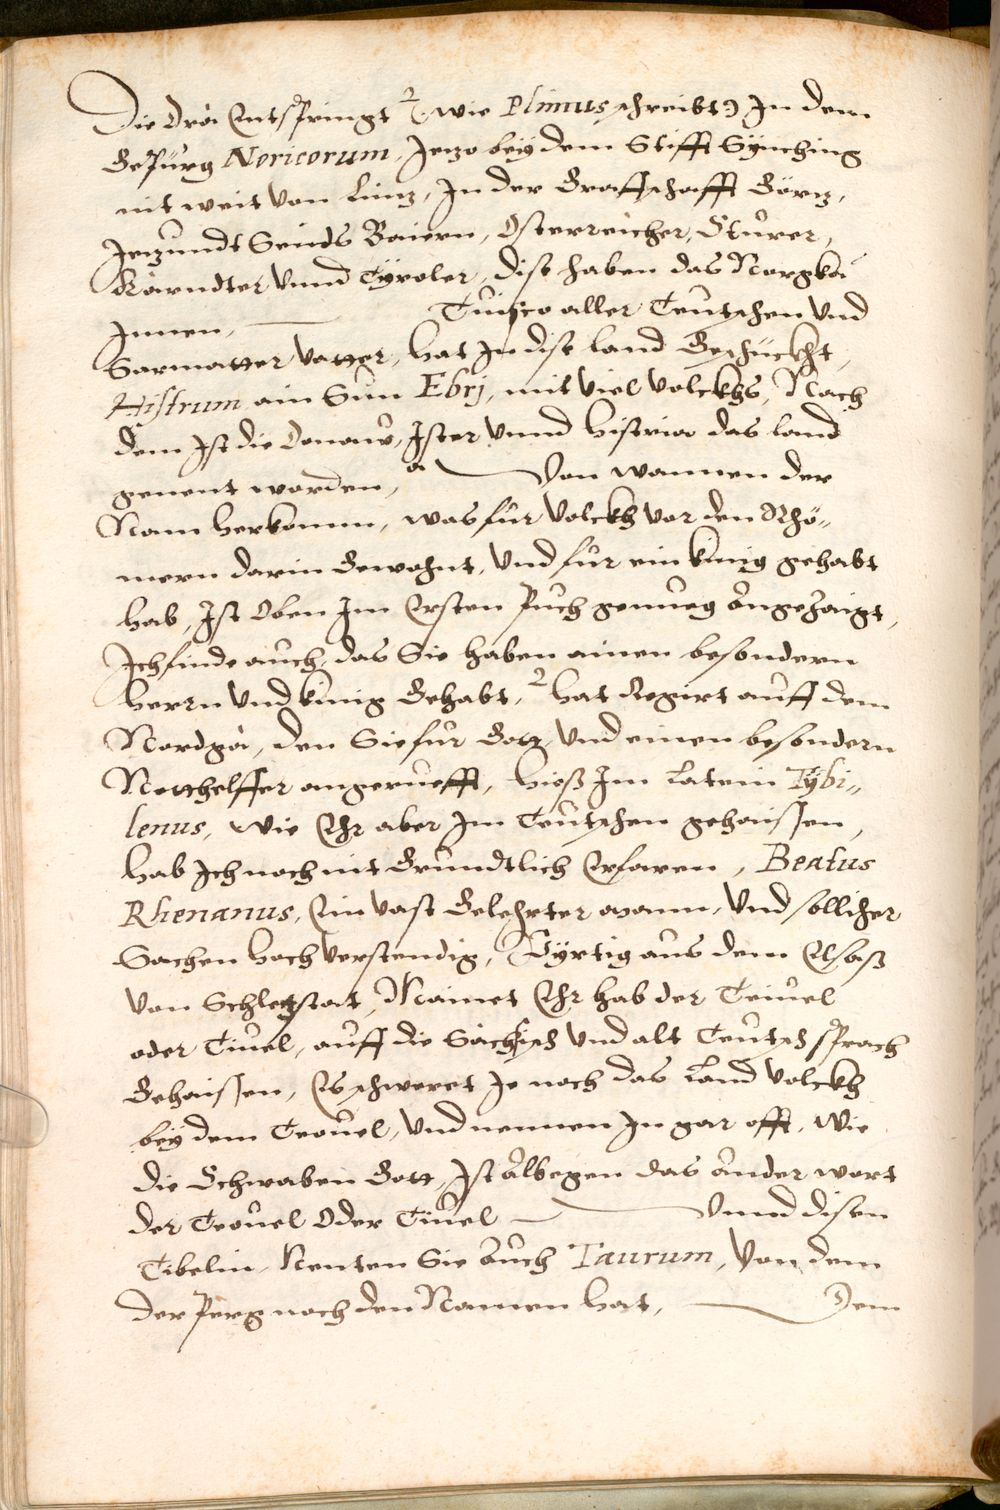 Die Dra Entspringt (: wie Plinius schreibt:) In dem
Gepürg Noricorum, Jezo bey dem Stifft Synching
nit weit von Linz, In der Graffschafft Görz,
Jezundt Seinds Baiern, Osterreicher, Stürer,
Kärndter vnnd Tyroler, dise haben das Norgkä
Innen, Tuisco aller Teutschen vnd
Sarmatter vatter, hat In dise land Geschückht,
Histrum ain Sun Ebrj, mit viel volckhs, Nach
dem Ist die Donaw, Ister vnnd Histria das land
genent worden, Von wannen der
Nam herkomm, was für volckh vor den Rhö„
mern darin Gewohnt, vnd für ein künig gehabt
hab, Ist Oben Im Ersten Puch genueg angezaigt,
Ich finde auch, das Sie haben ainen besondern
herrn vnd künig Gehabt, hat Regirt auff dem
Nordgä, den Sie für Gott, vnd einen besondern
Notthelffer angeruefft, hieß Im Latein Tÿbi„
lenus, wie Ehr aber Im Teutschen gehaissen,
hab Ich noch nit Grundtlich Erfaren, Beatus
Rhenanus, Ein vast Gelehrter mann, vnd sollicher
Sachen hoch verstendig, Pyrtig aus dem Elsaß
von Schletzstat, Mainet Ehr hab der Teiuel
oder Tiuel, auff die Sächsisch vnd alt Teutsch sprach
Gehaissen, Es schweret Je noch das Land volckh
bey dem Teouel, vnd nennen In gar offt, Wie
die Schwaben Gott, Ist Albegen das Ander wort
der Teouel Oder Tiuel Vnnd disen
Tibelin, Nenten Sie Auch Taurum, Von dem
der Perg noch den Namen hat, Dem